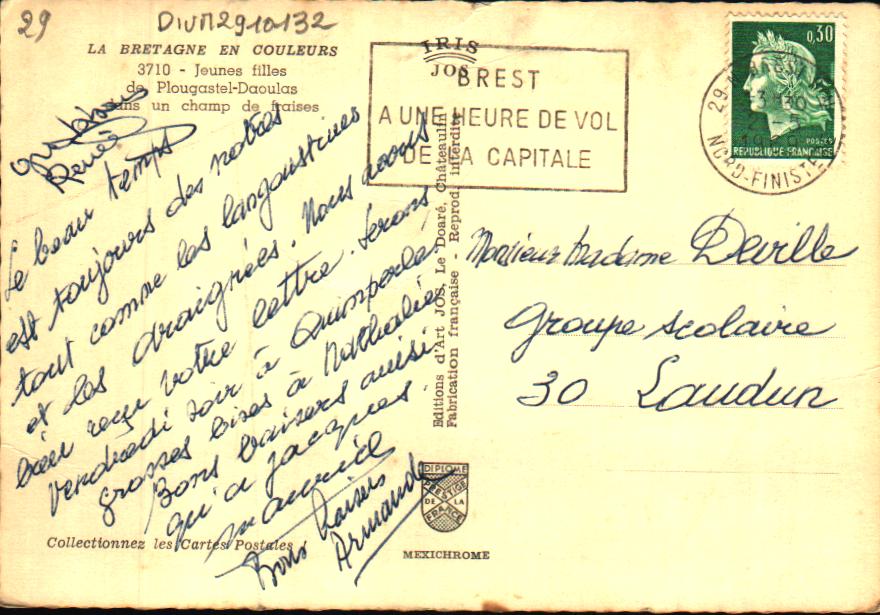 29
DIVM2910132
LA BRETAGNE EN COULEURS
3710 - Jeunes filles
de Plougastel-Daoulas
dans un champ de fraises
IRIS
JOS
BREST
A UNE HEURE DE VOL
DE LA CAPITALE
0,30
POSTES
REPUBLIQUE FRANÇAISE
29
NORD-FINISTE
Renée
Le beau temps
est toujours des nôtres
tout comme les langoustines
et les draignées. Nous avons
bien reçu votre lettre. Serons
Vendredi soir à Quimperlé.
grosses bises à Nathalie
Bons baisers ainsi
qu'a jacques.
maurice
Bons baisers
Armande
Monsieur Madame Deville
Groupe scolaire
30 Laudun
Editions d'Art JOS, Le Doaré, Châteaulin
Fabrication française - Reprod. interdite
DIPLOME
PRESTIGE
DE LA
FRANCE
Collectionnez les Cartes Postales !
MEXICHROME